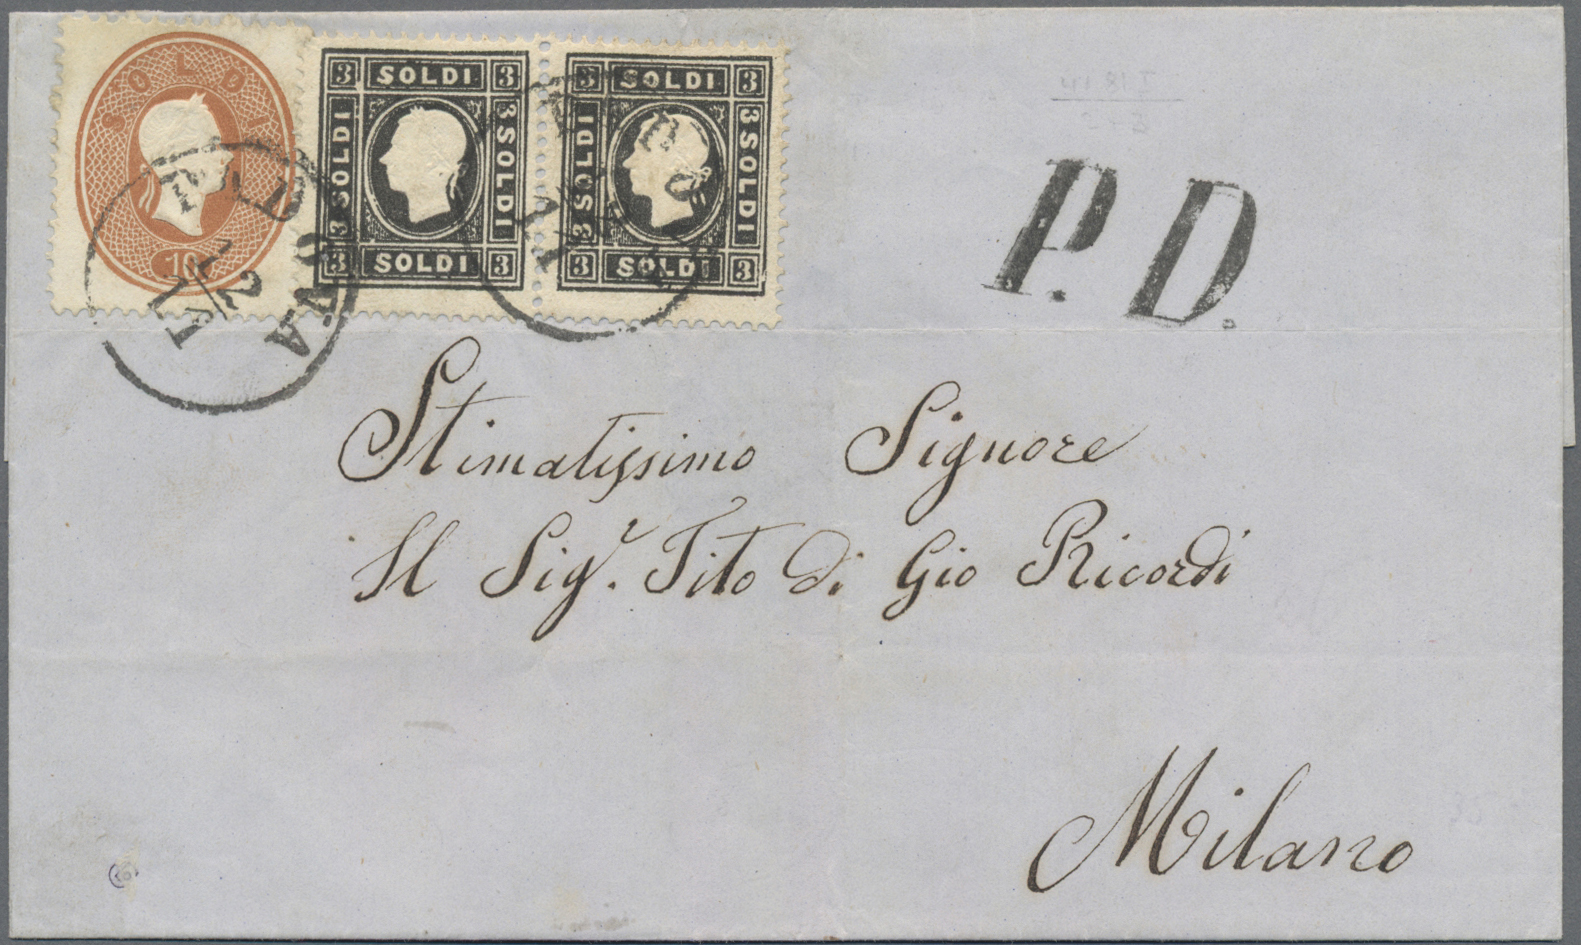 SOLDI
10
3 SOLDI 3
SOLDI
SOLDI
3 SOLDI 3
3 SOLDI 3
SOLDI
SOLDI
3 SOLDI 3
PADOVA
12
PADOVA
P.D.
Stimatissimo Signore
Il Sigr. Tito di Gio Ricordi
Milano